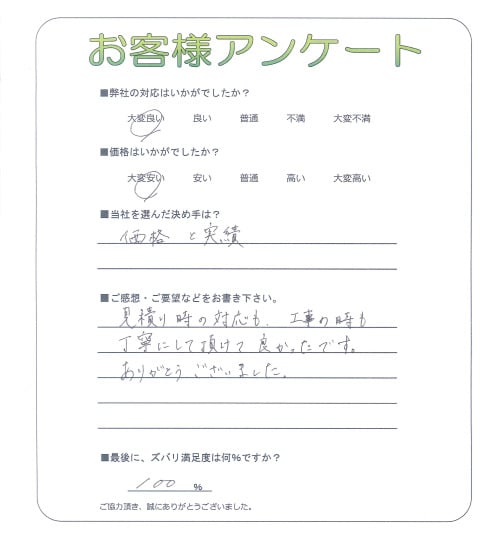 お客様アンケート
■弊社の対応はいかがでしたか？
大変良い 良い 普通 不満 大変不満
■価格はいかがでしたか？
大変安い 安い 普通 高い 大変高い
■当社を選んだ決め手は？
価格と実績
■ご感想・ご要望などをお書き下さい。
見積り時の対応も、工事の時も
丁寧にして頂けて良かったです。
ありがとうございました。
■最後に、ズバリ満足度は何%ですか？
100 %
ご協力頂き、誠にありがとうございました。